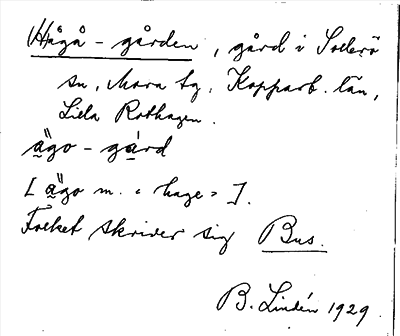 Hågå-gården, gård i Sollerö
sn, Mora tg, Kopparb. län,
Lilla Rothagen.
ägo-gård
[ ägo m. "hage" ].
Folket skriver sig Bus.
B. Lindén 1929.